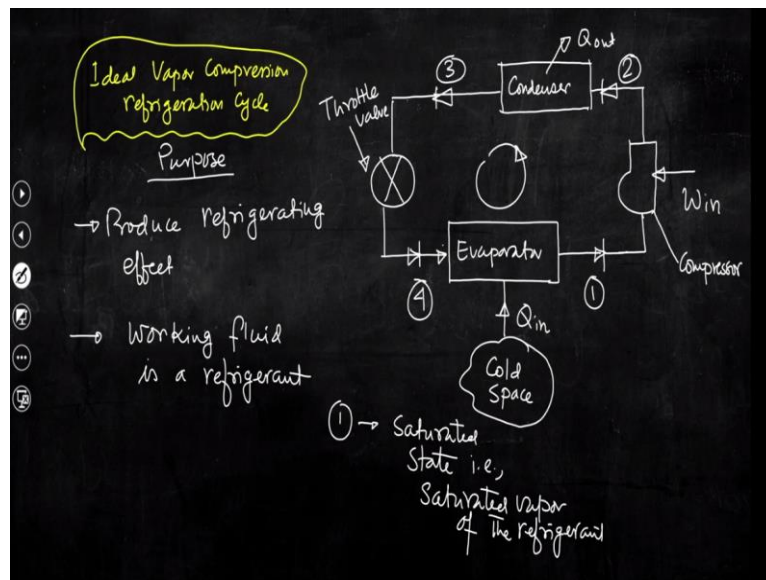 Ideal Vapor Compression
refrigeration Cycle
Purpose
→ Produce refrigerating
effect
→ Working fluid
is a refrigerant
Qout
③
Condenser
②
Throttle
valve
Win
Evaporator
Compressor
④
①
Qin
Cold
Space
① → Saturated
State i.e.,
Saturated vapor
of the refrigerant